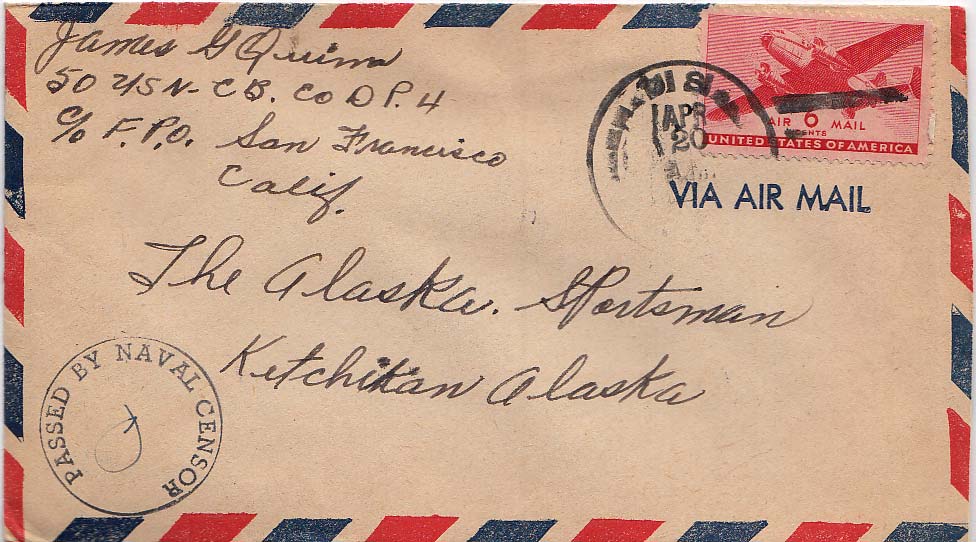 James G Quinn
50 USN-CB. Co D P. 4
c/o F.P.O. San Francisco
Calif.
APR
20
AIR 6 MAIL
CENTS
UNITED STATES OF AMERICA
VIA AIR MAIL
The Alaska. Sportsman
Ketchikan Alaska
PASSED BY NAVAL CENSOR